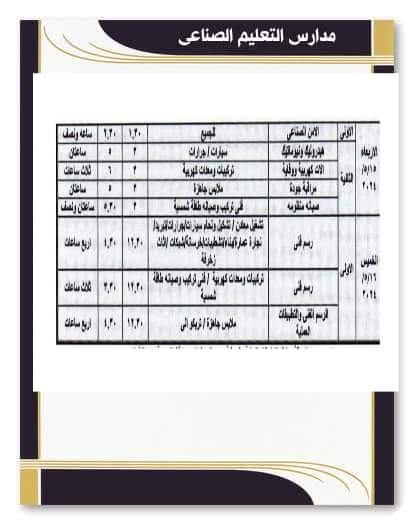 مدارس التعليم الصناعى
الاربعاء ٥/١٥/ ٢٠٢٤
الاولى الامن الصناعي للجميع ١,٣٠ ٢,٣٠ ساعه ونصف
الثانية هيدروليك ونيوماتيك سيارات / جرارات ٣ ٥ ساعتان
الات كهربية ووقاية تركيبات ومعدات كهربية ٣ ٦ ثلاث ساعات
مراقبة جودة ملابس جاهزة ٣ ٥ ساعتان
صيانه منظومه فنى تركيب وصيانه طاقة شمسية ٣ ٥,٣٠ ساعتان ونصف
الخميس ٥/١٦/ ٢٠٢٤
الاولى رسم فنى تشكيل معادن / تشكيل ولحام سيارات/جرارات/تبريد/
نجارة عمارة/بناء/تشطيبات/خرسانة/شبكات /اثاث
زخرفة ١٢,٣٠ ٤,٣٠ اربع ساعات
رسم فنى تركيبات ومعدات كهربية / فنى تركيب وصيانه طاقة
شمسية ١٢,٣٠ ٣,٣٠ ثلاث ساعات
الرسم الفنى والتطبيقات
العملية ملابس جاهزة / تريكو الى ١٢,٣٠ ٤,٣٠ اربع ساعات